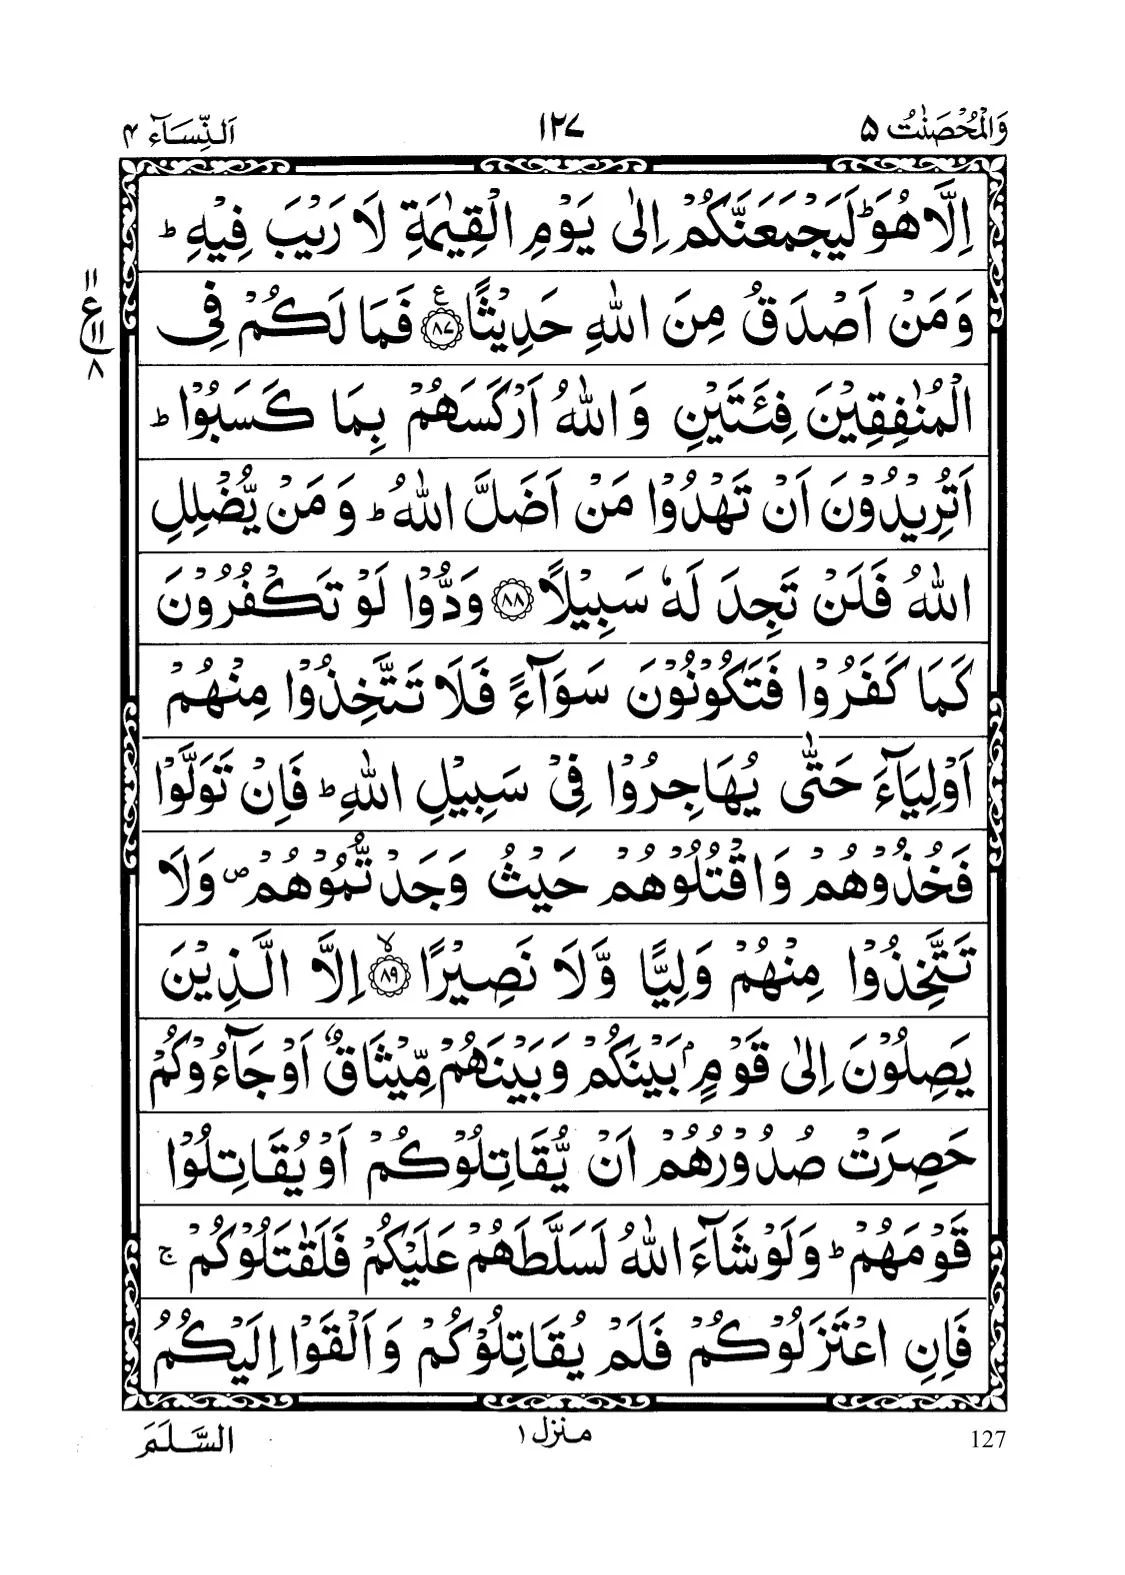 وَالْمُحْصَنٰتُ ۵
۱۲۷
اَلنِّسَآء ۴
اِلَّا هُوَ ؕ لَيَجْمَعَنَّكُمْ اِلٰى يَوْمِ الْقِيٰمَةِ لَا رَيْبَ فِيْهِ ؕ
وَمَنْ اَصْدَقُ مِنَ اللّٰهِ حَدِيْثًا ۟ع ﴿۸۷﴾ فَمَا لَكُمْ فِى
الْمُنٰفِقِيْنَ فِئَتَيْنِ وَاللّٰهُ اَرْكَسَهُمْ بِمَا كَسَبُوْا ؕ
اَتُرِيْدُوْنَ اَنْ تَهْدُوْا مَنْ اَضَلَّ اللّٰهُ ؕ وَمَنْ يُّضْلِلِ
اللّٰهُ فَلَنْ تَجِدَ لَهٗ سَبِيْلًا ﴿۸۸﴾ وَدُّوْا لَوْ تَكْفُرُوْنَ
كَمَا كَفَرُوْا فَتَكُوْنُوْنَ سَوَآءً فَلَا تَتَّخِذُوْا مِنْهُمْ
اَوْلِيَآءَ حَتّٰى يُهَاجِرُوْا فِىْ سَبِيْلِ اللّٰهِ ؕ فَاِنْ تَوَلَّوْا
فَخُذُوْهُمْ وَاقْتُلُوْهُمْ حَيْثُ وَجَدْتُّمُوْهُمْ ص وَلَا
تَتَّخِذُوْا مِنْهُمْ وَلِيًّا وَّلَا نَصِيْرًا ۙ ﴿۸۹﴾ اِلَّا الَّذِيْنَ
يَصِلُوْنَ اِلٰى قَوْمٍۭ بَيْنَكُمْ وَبَيْنَهُمْ مِّيْثَاقٌ اَوْ جَآءُوْكُمْ
حَصِرَتْ صُدُوْرُهُمْ اَنْ يُّقَاتِلُوْكُمْ اَوْ يُقَاتِلُوْا
قَوْمَهُمْ ؕ وَلَوْ شَآءَ اللّٰهُ لَسَلَّطَهُمْ عَلَيْكُمْ فَلَقٰتَلُوْكُمْ ۚ
فَاِنِ اعْتَزَلُوْكُمْ فَلَمْ يُقَاتِلُوْكُمْ وَاَلْقَوْا اِلَيْكُمُ
۱۱
ع
۱۱
۸
127
منزل ۱
السَّلَمَ